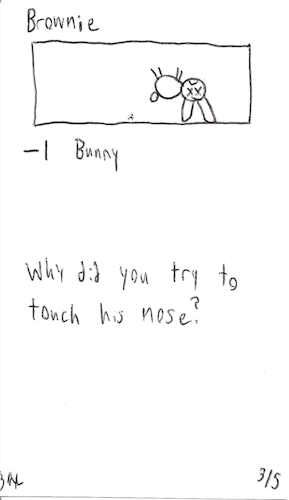 Brownie
-1 Bunny
Why did you try to
touch his nose?
3/5